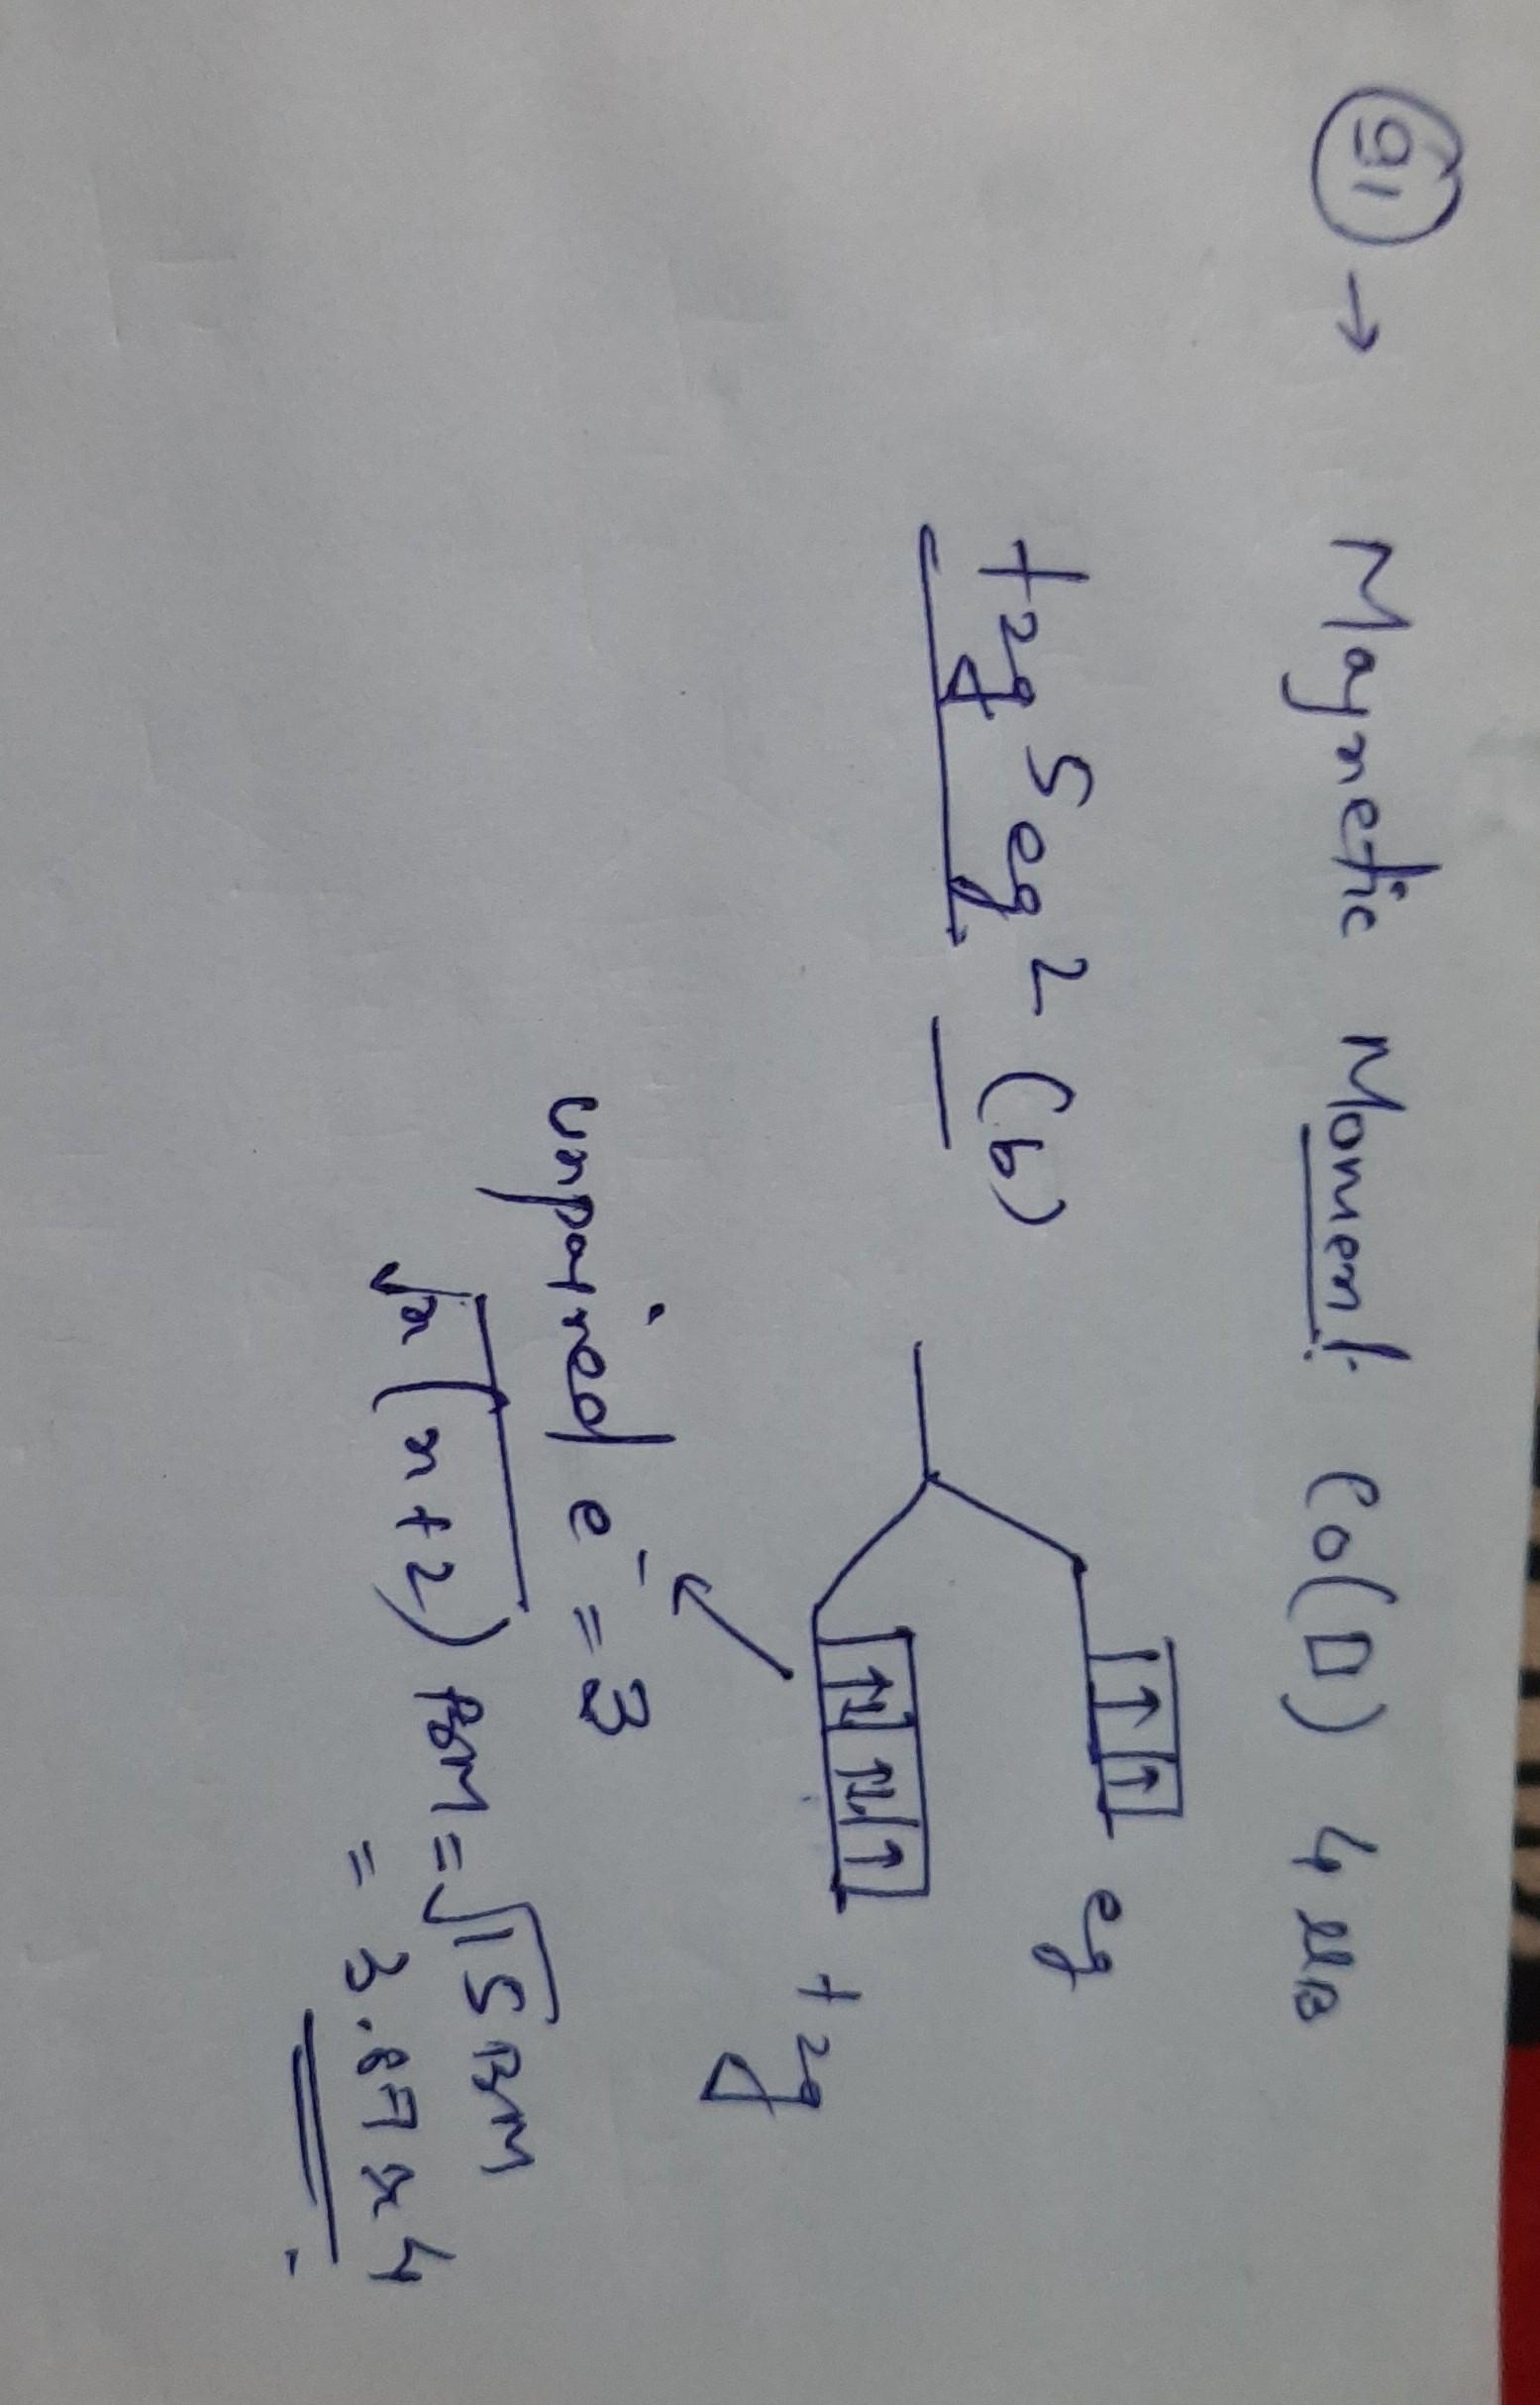 91 → Magnetic Moment Co(II) 4 μB
t2g5 eg2 (b)
↑ ↑ eg
↑↓ ↑↓ ↑ t2g
unpaired e- = 3
√n(n+2) BM = √15 BM
= 3.87 ≈ 4